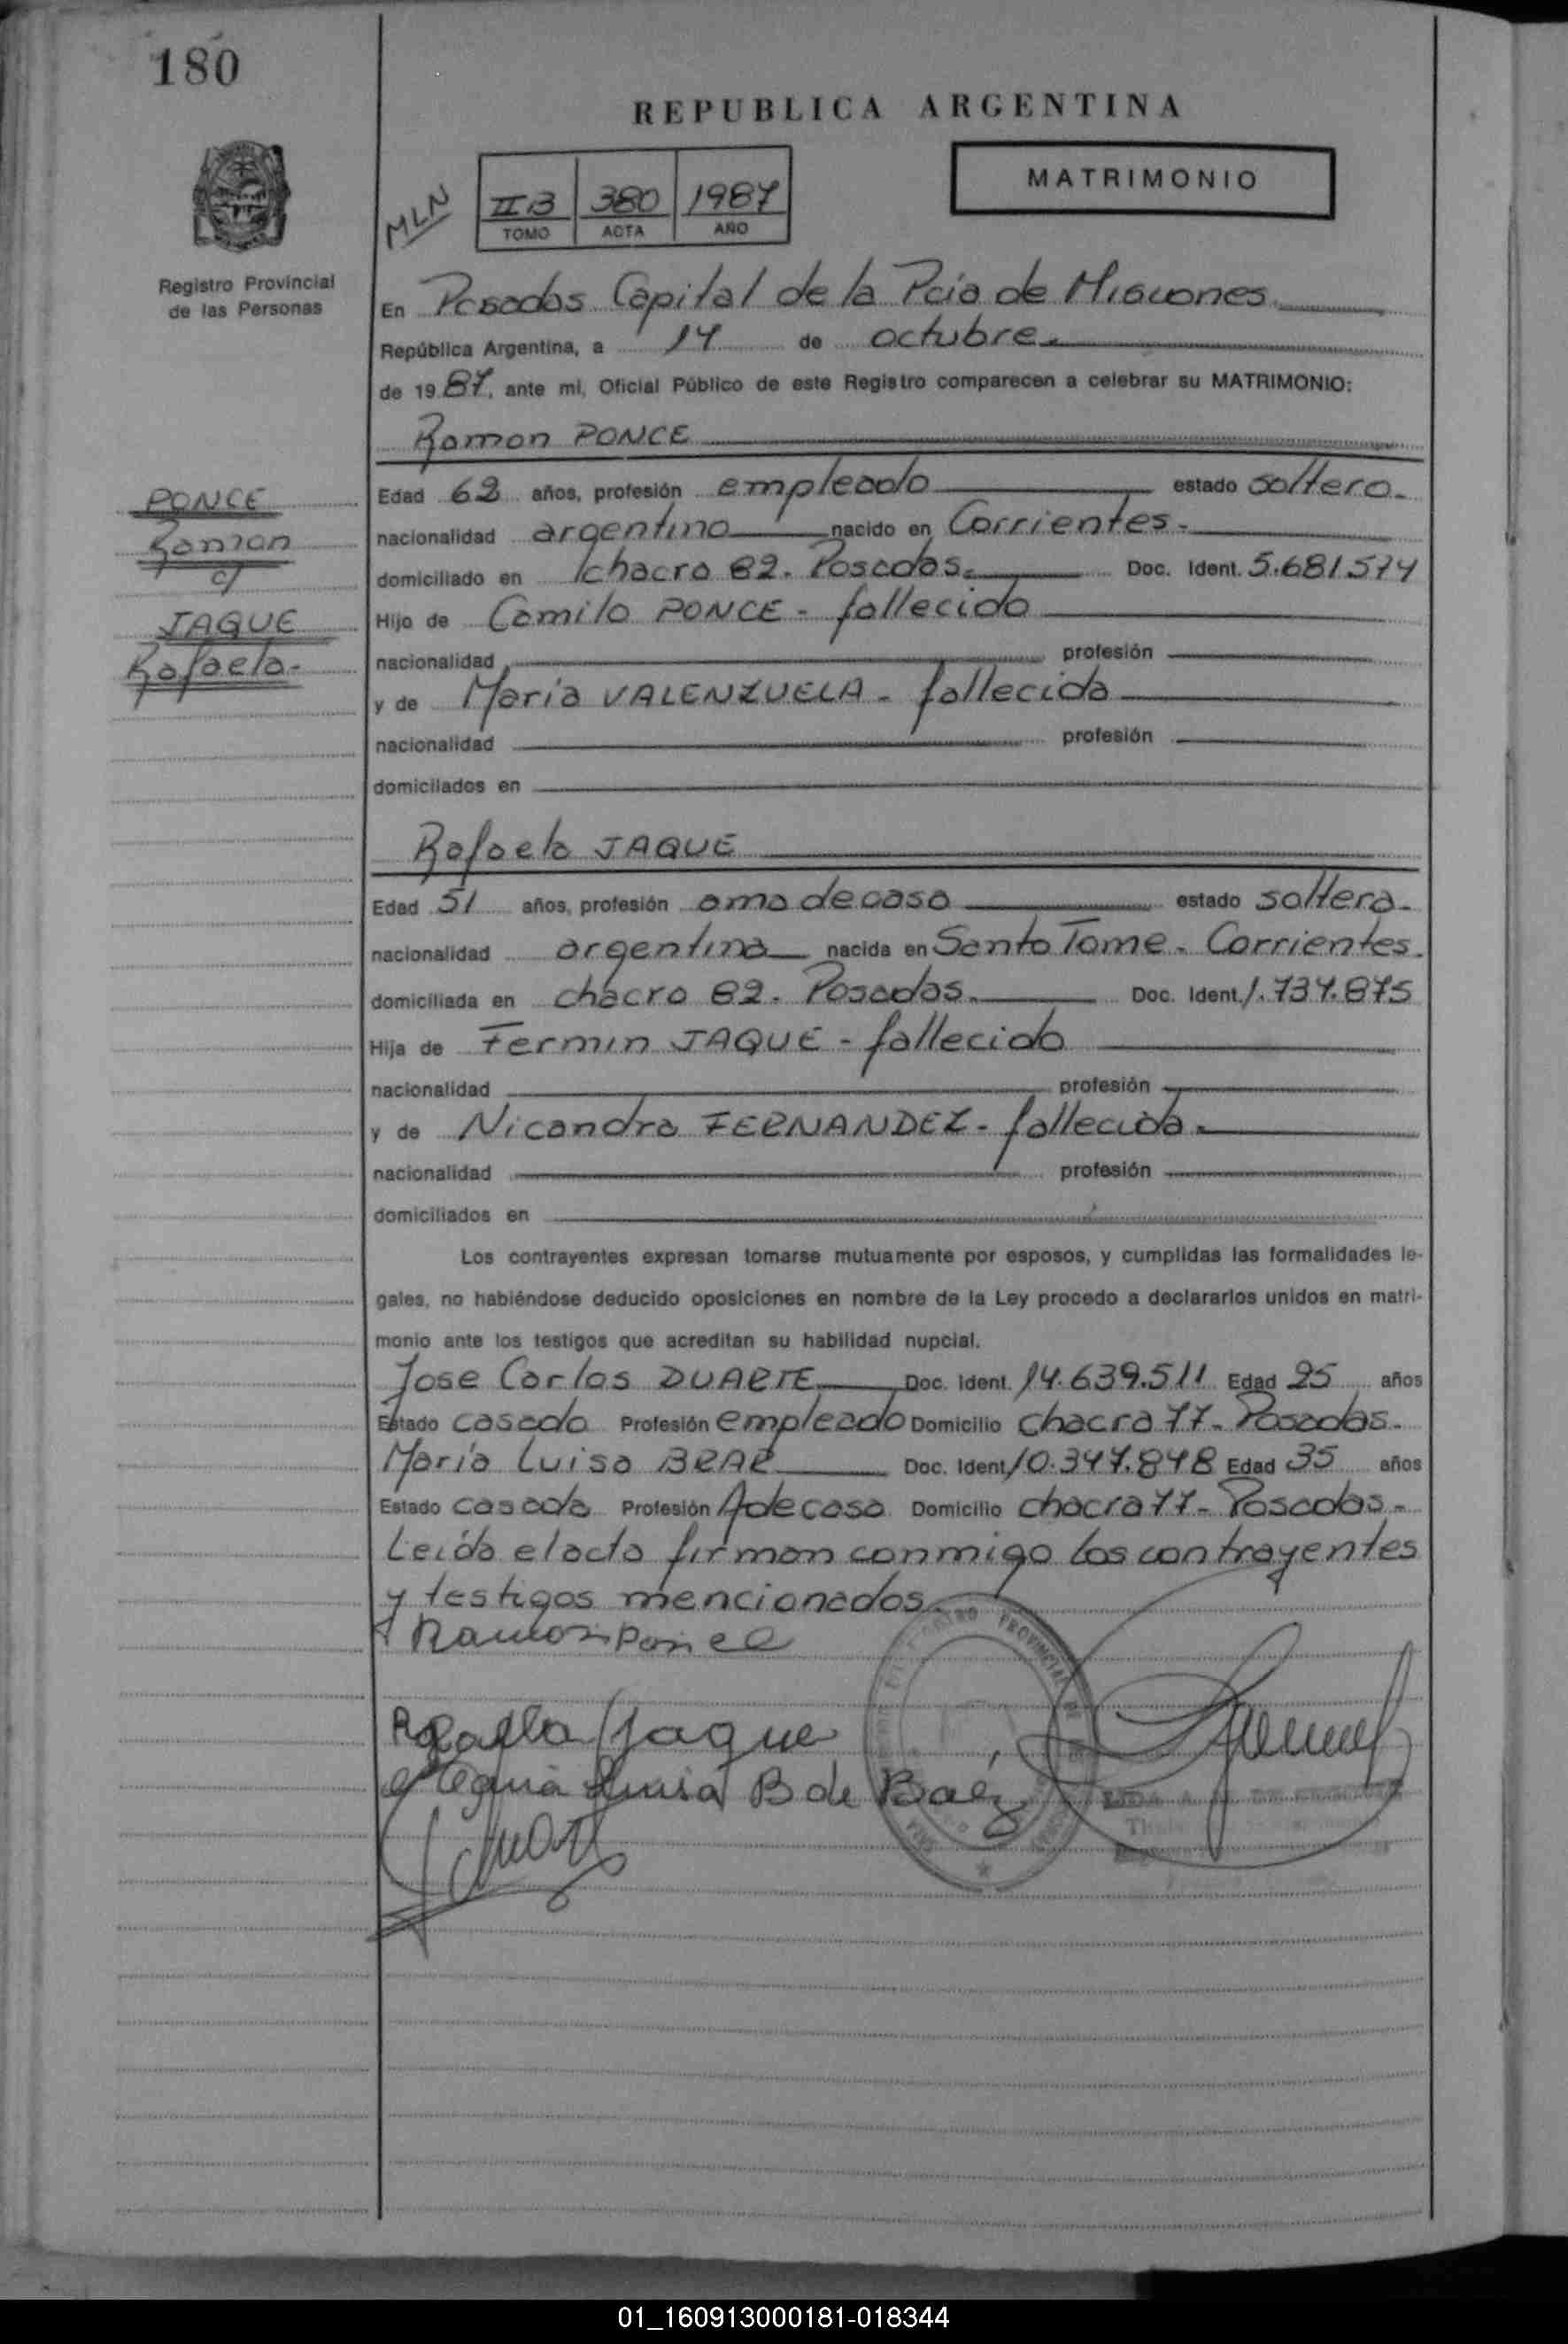 180
REPUBLICA ARGENTINA
MATRIMONIO
MLN
II B 380 1987
TOMO ACTA AÑO
Registro Provincial
de las Personas
En Posadas Capital de la Pcia de Misiones.
República Argentina, a 14 de octubre.
de 1987, ante mi, Oficial Público de este Registro comparecen a celebrar su MATRIMONIO:
Ramon PONCE
PONCE
Ramon
c/
JAQUE
Rafaela.
Edad 62 años, profesión empleado estado soltero.
nacionalidad argentino nacido en Corrientes.
domiciliado en chacra 82. Posadas. Doc. Ident. 5.681.574
Hijo de Camilo PONCE - fallecido
nacionalidad profesión
y de Maria VALENZUELA - fallecida
nacionalidad profesión
domiciliados en
Rafaela JAQUE
Edad 51 años, profesión ama de casa estado soltera.
nacionalidad argentina nacida en Santo Tome - Corrientes.
domiciliada en chacra 82. Posadas. Doc. Ident. 1.734.875
Hija de Fermin JAQUE - fallecido
nacionalidad profesión
y de Nicandra FERNANDEZ - fallecida.
nacionalidad profesión
domiciliados en
Los contrayentes expresan tomarse mutuamente por esposos, y cumplidas las formalidades le-
gales, no habiéndose deducido oposiciones en nombre de la Ley procedo a declararlos unidos en matri-
monio ante los testigos que acreditan su habilidad nupcial.
Jose Carlos DUARTE Doc. Ident. 14.639.511 Edad 25 años
Estado casado Profesión empleado Domicilio chacra 77 - Posadas.
María Luisa BRAR Doc. Ident. 10.347.848 Edad 35 años
Estado casada Profesión A de casa Domicilio chacra 77 - Posadas -
Leída el acta firman conmigo los contrayentes
y testigos mencionados.
Ramon Ponce
Rafaela Jaque
Luisa B de Baéz
PROVINCIAL
01_160913000181-018344